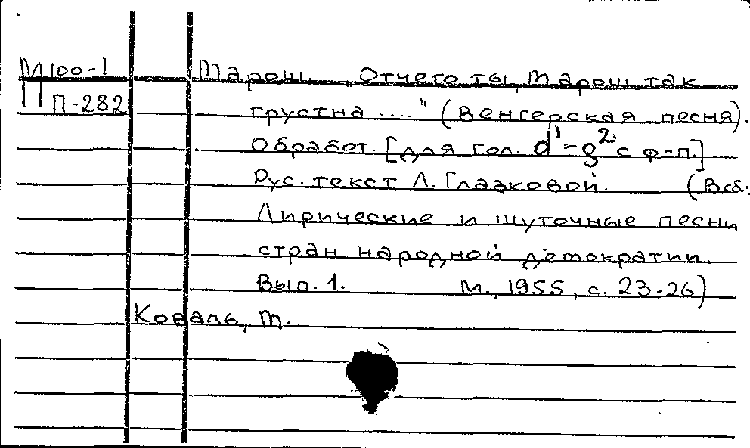 М100-1 Мареш. „Отчего ты, Мареш так
П-282 грустна ...." (Венгерская песня).
Обработ. [для гол. d¹-g² с ф-п.]
Рус. текст Л. Глазковой. (В сб.
Лирические и шуточные песни
стран народной демократии.
Вып. 1. М., 1955, с. 23-26)
Коваль, М.